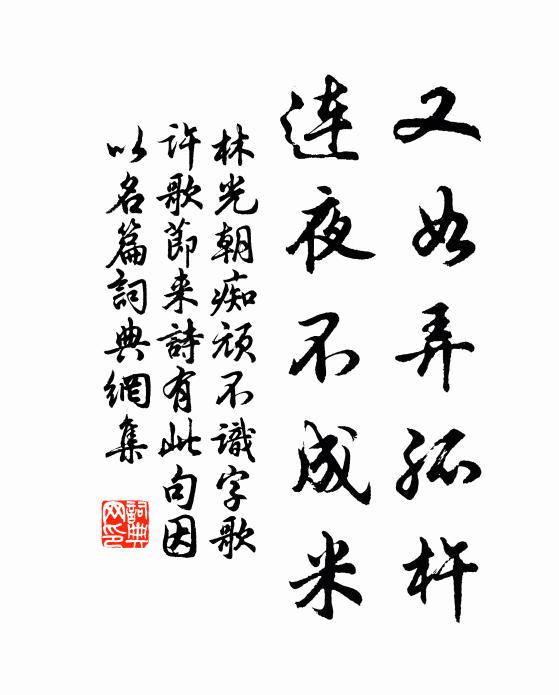 又如弄孤杵
連夜不成米
林光朝痴頑不識字歌
許歌節来詩有此句因
以名篇詞典網集
詞典网印